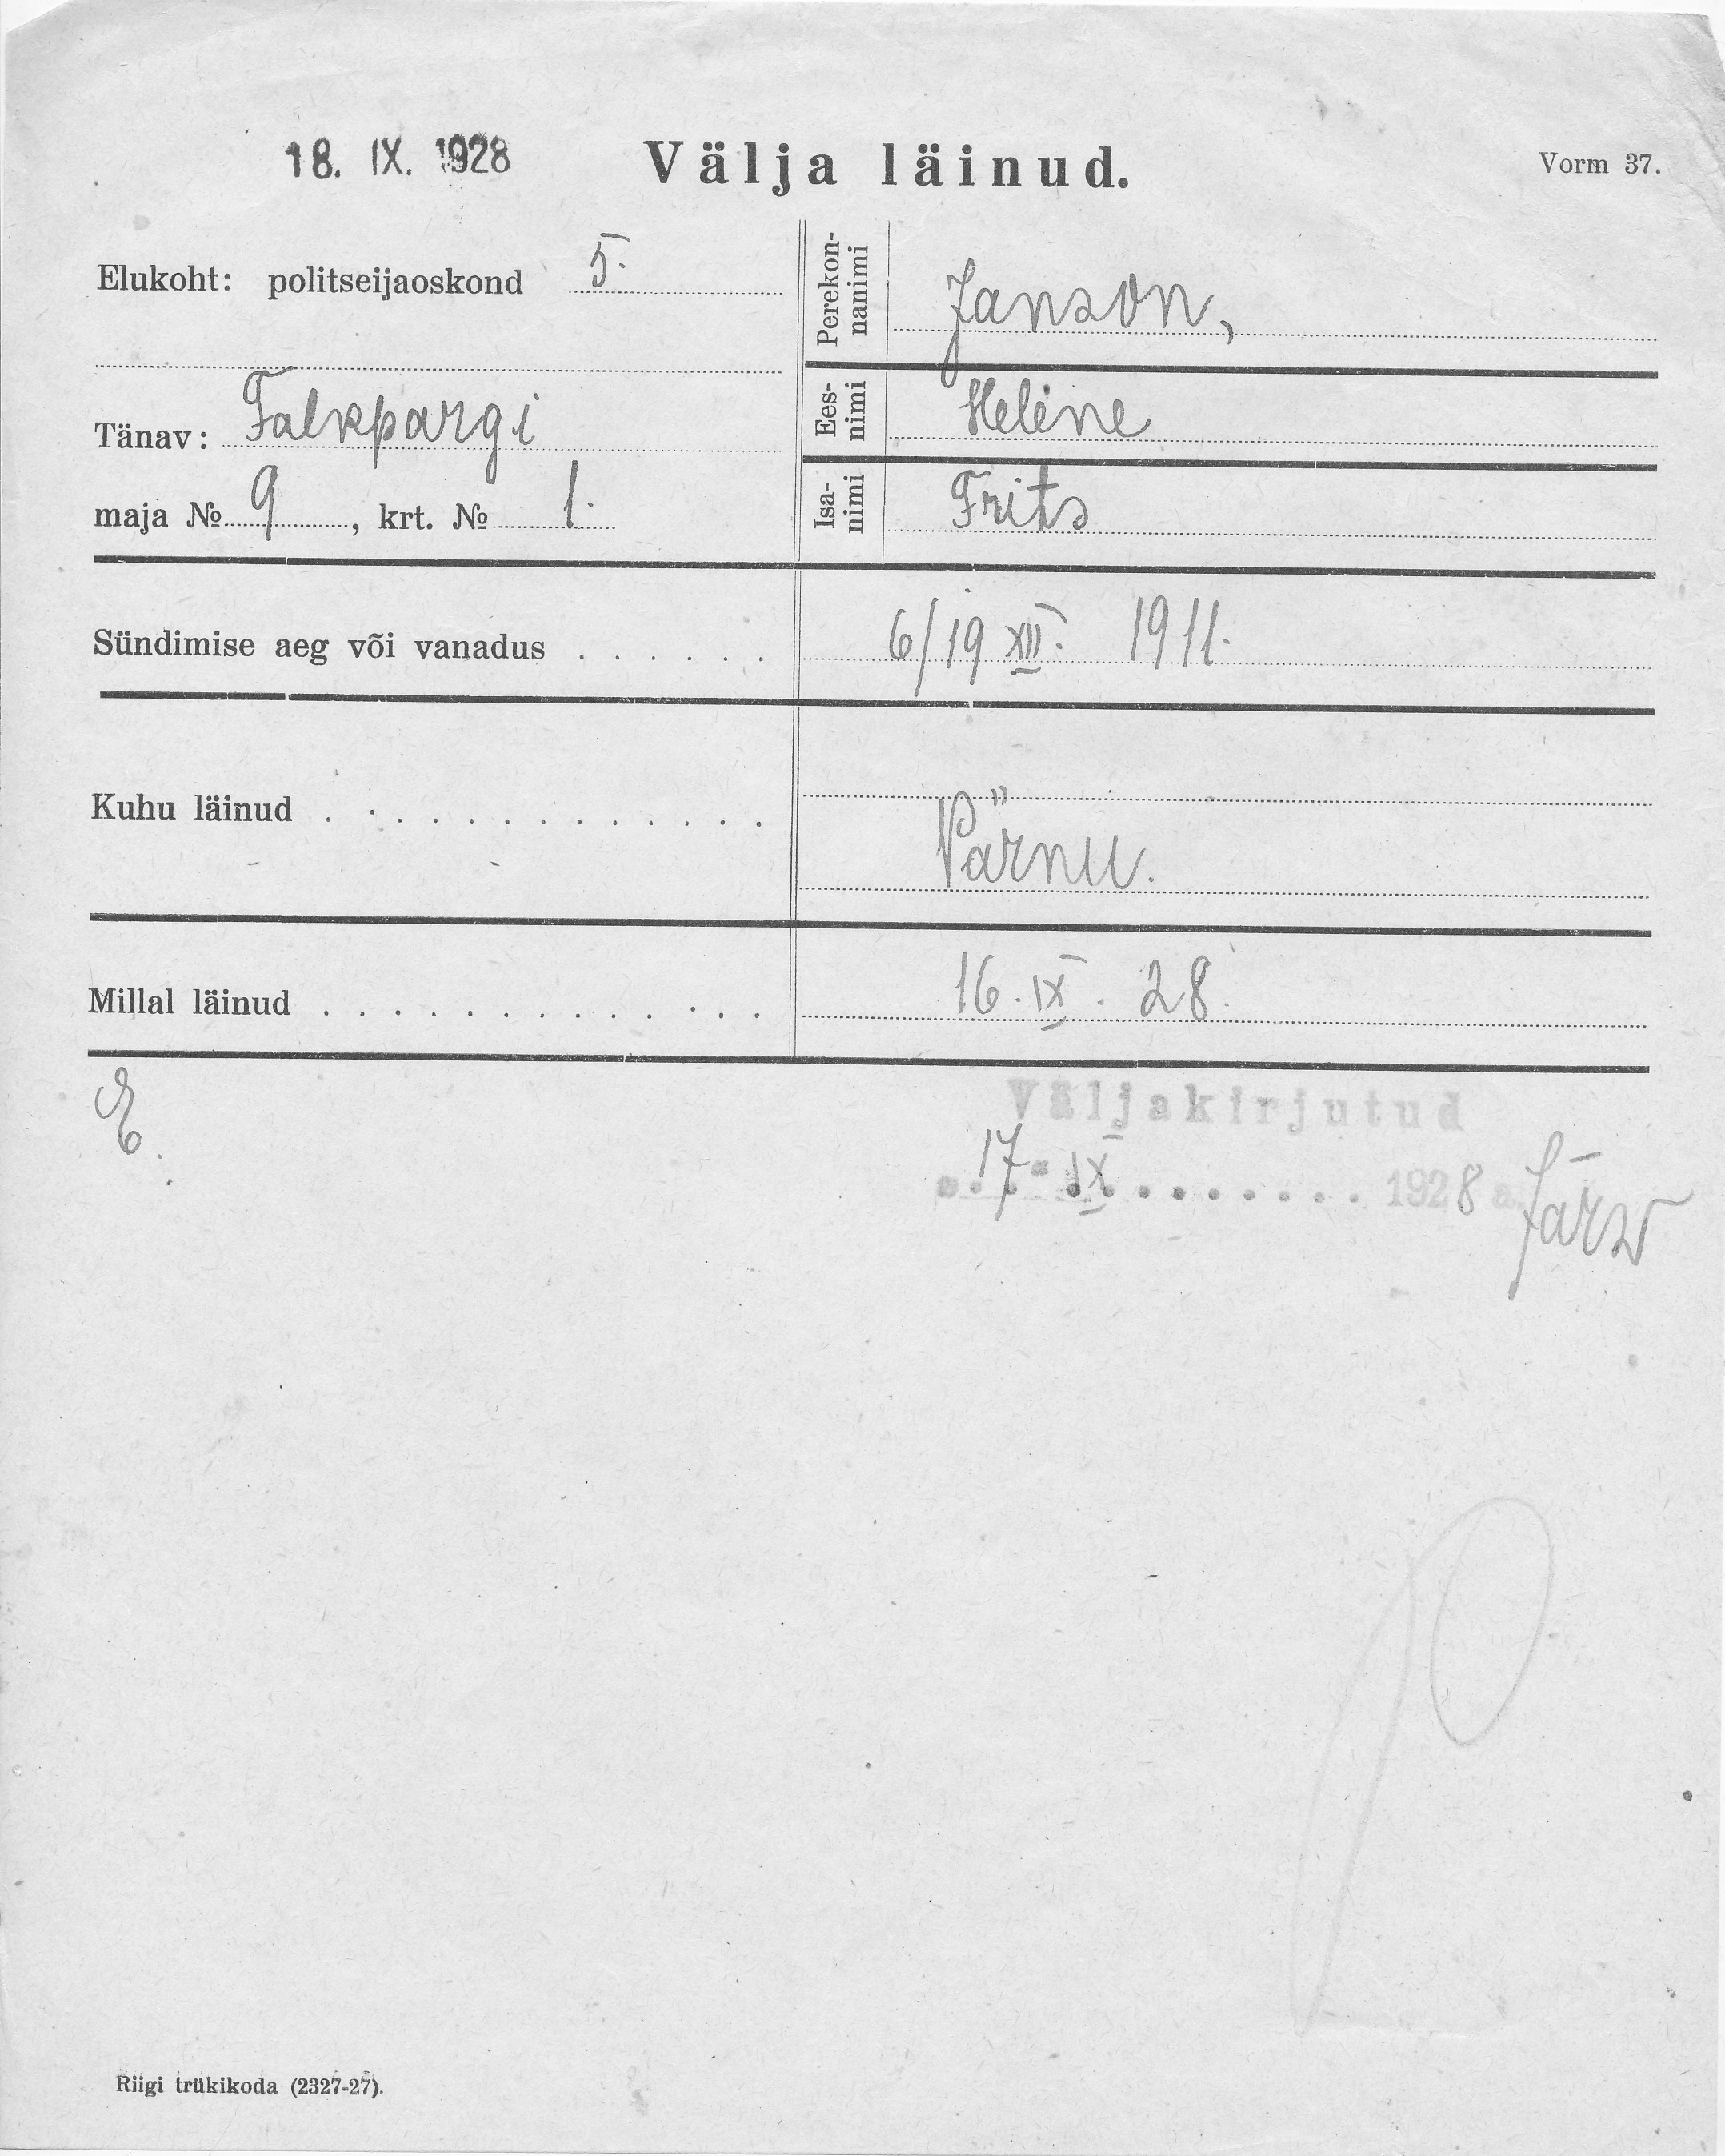 18. IX. 1928
Välja läinud.
Vorm 37.
Elukoht: politseijaoskond 5.
Tänav: Falkpargi
maja № 9, krt. № 1.
Perekon-
nanimi
Janson,
Ees-
nimi
Helene
Isa-
nimi
Frits
Sündimise aeg või vanadus . . . . . . 6/19 XII. 1911.
Kuhu läinud . . . . . . . . . . . . . Pärnu.
Millal läinud . . . . . . . . . . . . . 16. IX. 28.
Väljakirjutud
17. IX . . . . . . . . 1928 a. Järw
Riigi trükikoda (2327-27).